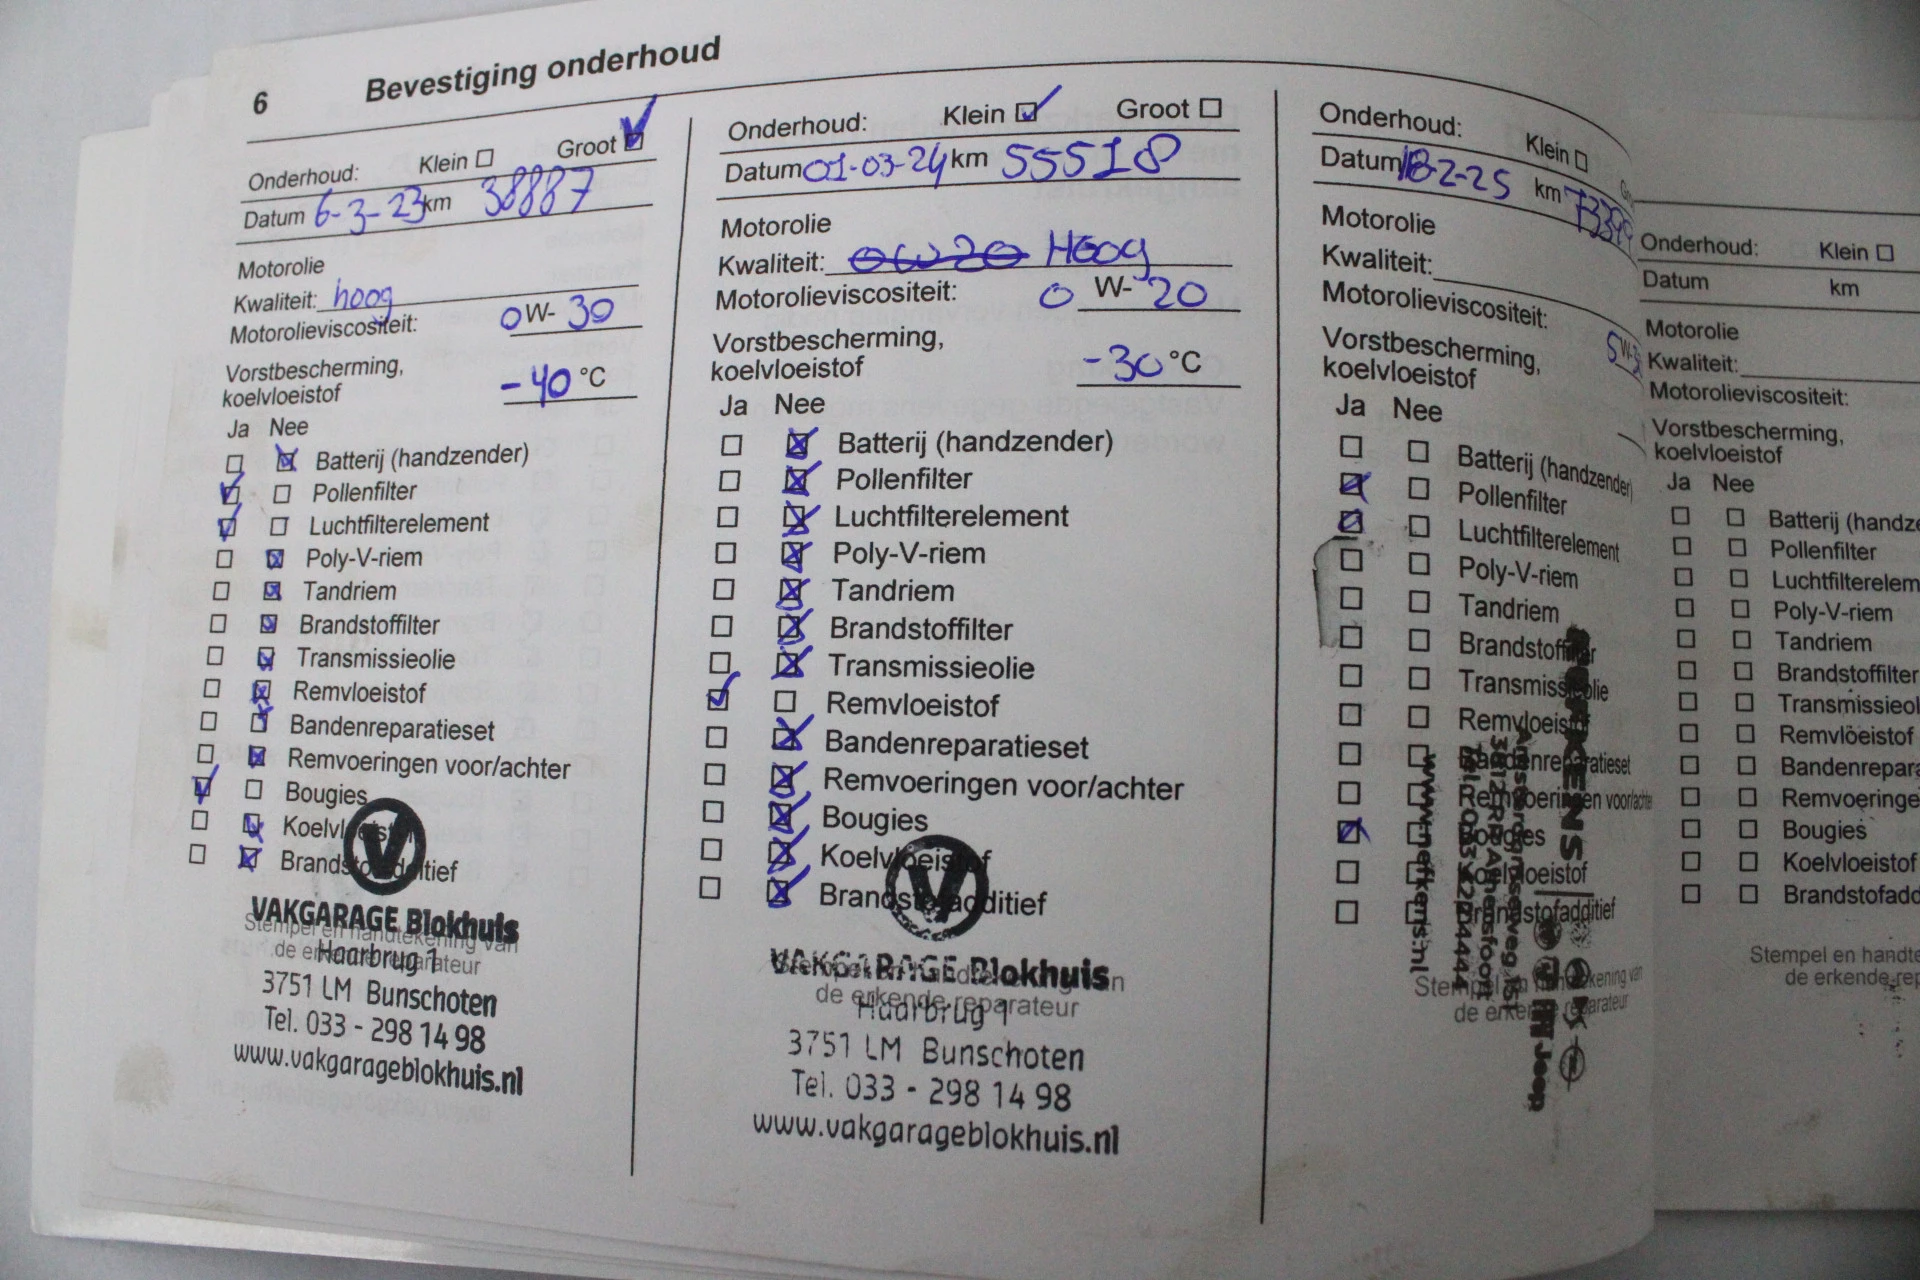 6 Bevestiging onderhoud
Onderhoud: Klein Groot
Datum 6-3-23 km 38887
Motorolie
Kwaliteit: hoog
Motorolieviscositeit: 0 W- 30
Vorstbescherming,
koelvloeistof -40 °C
Ja Nee
Batterij (handzender)
Pollenfilter
Luchtfilterelement
Poly-V-riem
Tandriem
Brandstoffilter
Transmissieolie
Remvloeistof
Bandenreparatieset
Remvoeringen voor/achter
Bougies
Koelvloeistof
Brandstofadditief
VAKGARAGE Blokhuis
Stempel en handtekening van
de erkende reparateur
Haarbrug 1
3751 LM Bunschoten
Tel. 033 - 298 14 98
www.vakgarageblokhuis.nl
Onderhoud: Klein Groot
Datum 01-03-24 km 55518
Motorolie
Kwaliteit: 0W20 Hoog
Motorolieviscositeit: 0 W- 20
Vorstbescherming,
koelvloeistof -30 °C
Ja Nee
Batterij (handzender)
Pollenfilter
Luchtfilterelement
Poly-V-riem
Tandriem
Brandstoffilter
Transmissieolie
Remvloeistof
Bandenreparatieset
Remvoeringen voor/achter
Bougies
Koelvloeistof
Brandstofadditief
VAKGARAGE Blokhuis
Stempel en handtekening van
de erkende reparateur
Haarbrug 1
3751 LM Bunschoten
Tel. 033 - 298 14 98
www.vakgarageblokhuis.nl
Onderhoud: Klein
Datum 18-2-25 km
Motorolie
Kwaliteit:
Motorolieviscositeit: 5 W-
Vorstbescherming,
koelvloeistof
Ja Nee
Batterij (handzender)
Pollenfilter
Luchtfilterelement
Poly-V-riem
Tandriem
Brandstoffilter
Transmissieolie
Remvloeistof
Bandenreparatieset
Remvoeringen voor/achter
Bougies
Koelvloeistof
Brandstofadditief
Stempel en handtekening van
de erkende reparateur
Amersfoort
www.nefkens.nl
Jeep
Onderhoud: Klein
Datum km
Motorolie
Kwaliteit:
Motorolieviscositeit:
Vorstbescherming,
koelvloeistof
Ja Nee
Batterij (handze
Pollenfilter
Luchtfilterelem
Poly-V-riem
Tandriem
Brandstoffilter
Transmissieol
Remvloeistof
Bandenrepara
Remvoeringe
Bougies
Koelvloeistof
Brandstofadd
Stempel en handte
de erkende rep